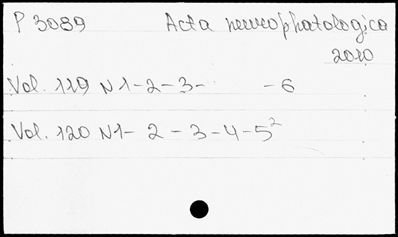 P 3089 Acta neurophatologica
2010
Vol. 119 N1-2-3- -6
Vol. 120 N1- 2 - 3-4-5²